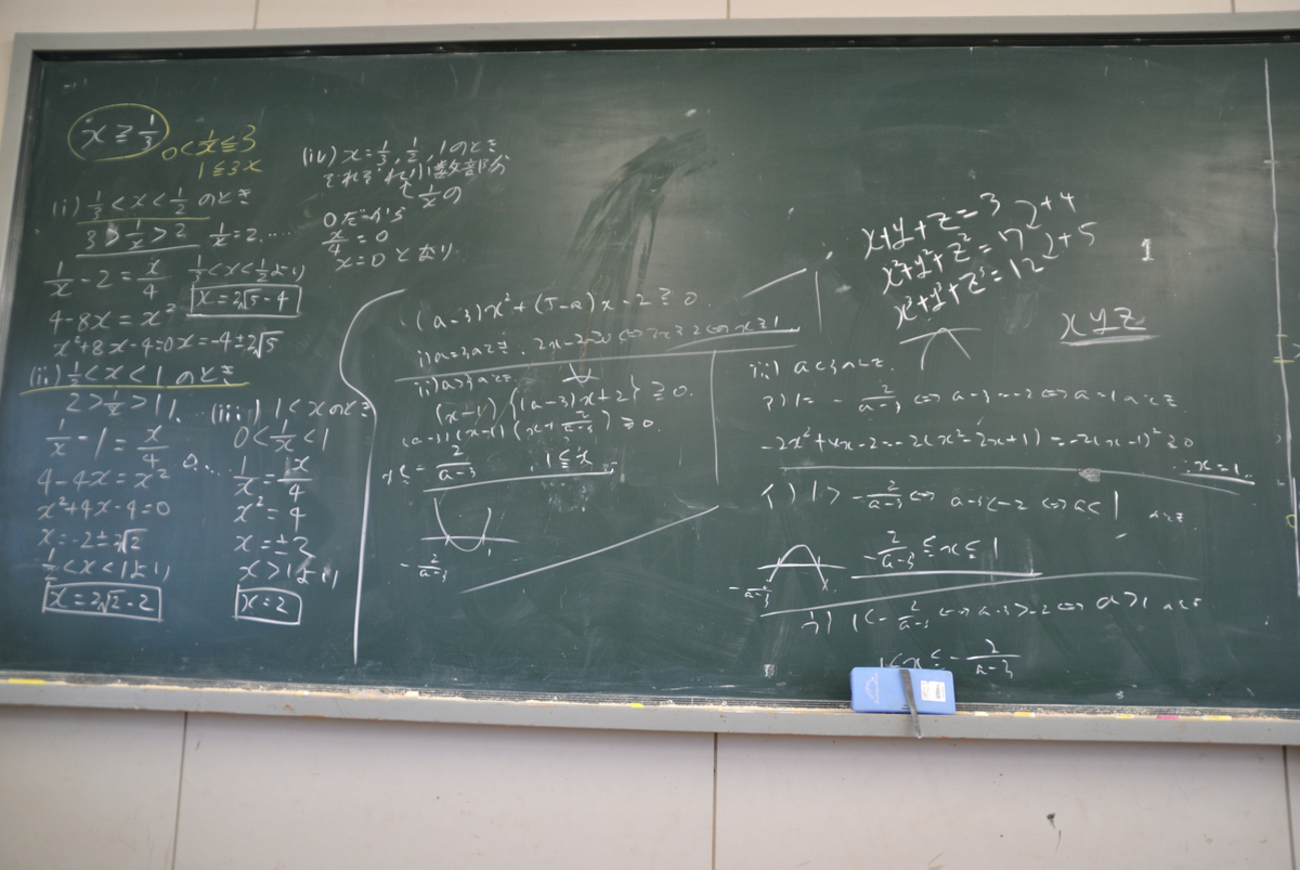 x ≧ 1/3
0 < 1/x ≦ 3
1 ≦ 3x
(i) 1/3 < x < 1/2 のとき
3 > 1/x > 2 1/x = 2.....
1/x - 2 = x/4
1/3 < x < 1/2 より
4 - 8x = x²
x = 2√5 - 4
x² + 8x - 4 = 0 x = -4 ± 2√5
(ii) 1/2 < x < 1 のとき
2 > 1/x > 1
1/x - 1 = x/4
4 - 4x = x²
x² + 4x - 4 = 0
x = -2 ± 2√2
1/2 < x < 1 より
x = 2√2 - 2
(iii) 1 < x のとき
0 < 1/x < 1
0.... 1/x = x/4
x² = 4
x = ± 2
x > 1 より
x = 2
(iv) x = 1/3, 1/2, 1 のとき
それぞれ小数部分
1/x の
0 だから
x/4 = 0
x = 0 となり
(a-3)x² + (5-a)x - 2 ≧ 0
i) a=3のとき. 2x-2≧0 ⇔ 2x≧2 ⇔ x≧1
ii) a>3のとき.
(x-1){(a-3)x+2} ≧ 0.
(a-3)(x-1)(x+2/(a-3)) ≧ 0.
x ≦ -2/(a-3) , 1 ≦ x
-2/(a-3)
x+y+z = 3
x²+y²+z² = 7 2+4
x³+y³+z³ = 12 2+5
1
xyz
iii) a<3のとき.
ア) 1 = -2/(a-3) ⇔ a-3=-2 ⇔ a=1のとき.
-2x²+4x-2 = -2(x²-2x+1) = -2(x-1)² ≧ 0
∴ x = 1
イ) 1 > -2/(a-3) ⇔ a-3<-2 ⇔ a<1 のとき
-2/(a-3) ≦ x ≦ 1
-2/(a-3)
ウ) 1 < -2/(a-3) ⇔ a-3>-2 ⇔ a>1 のとき
1 ≦ x ≦ -2/(a-3)